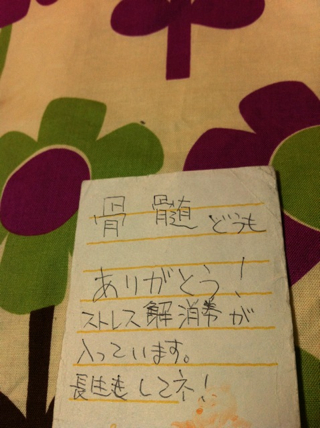 骨髄どうも
ありがとう!
ストレス解消券が
入っています。
長生きしてネ!!